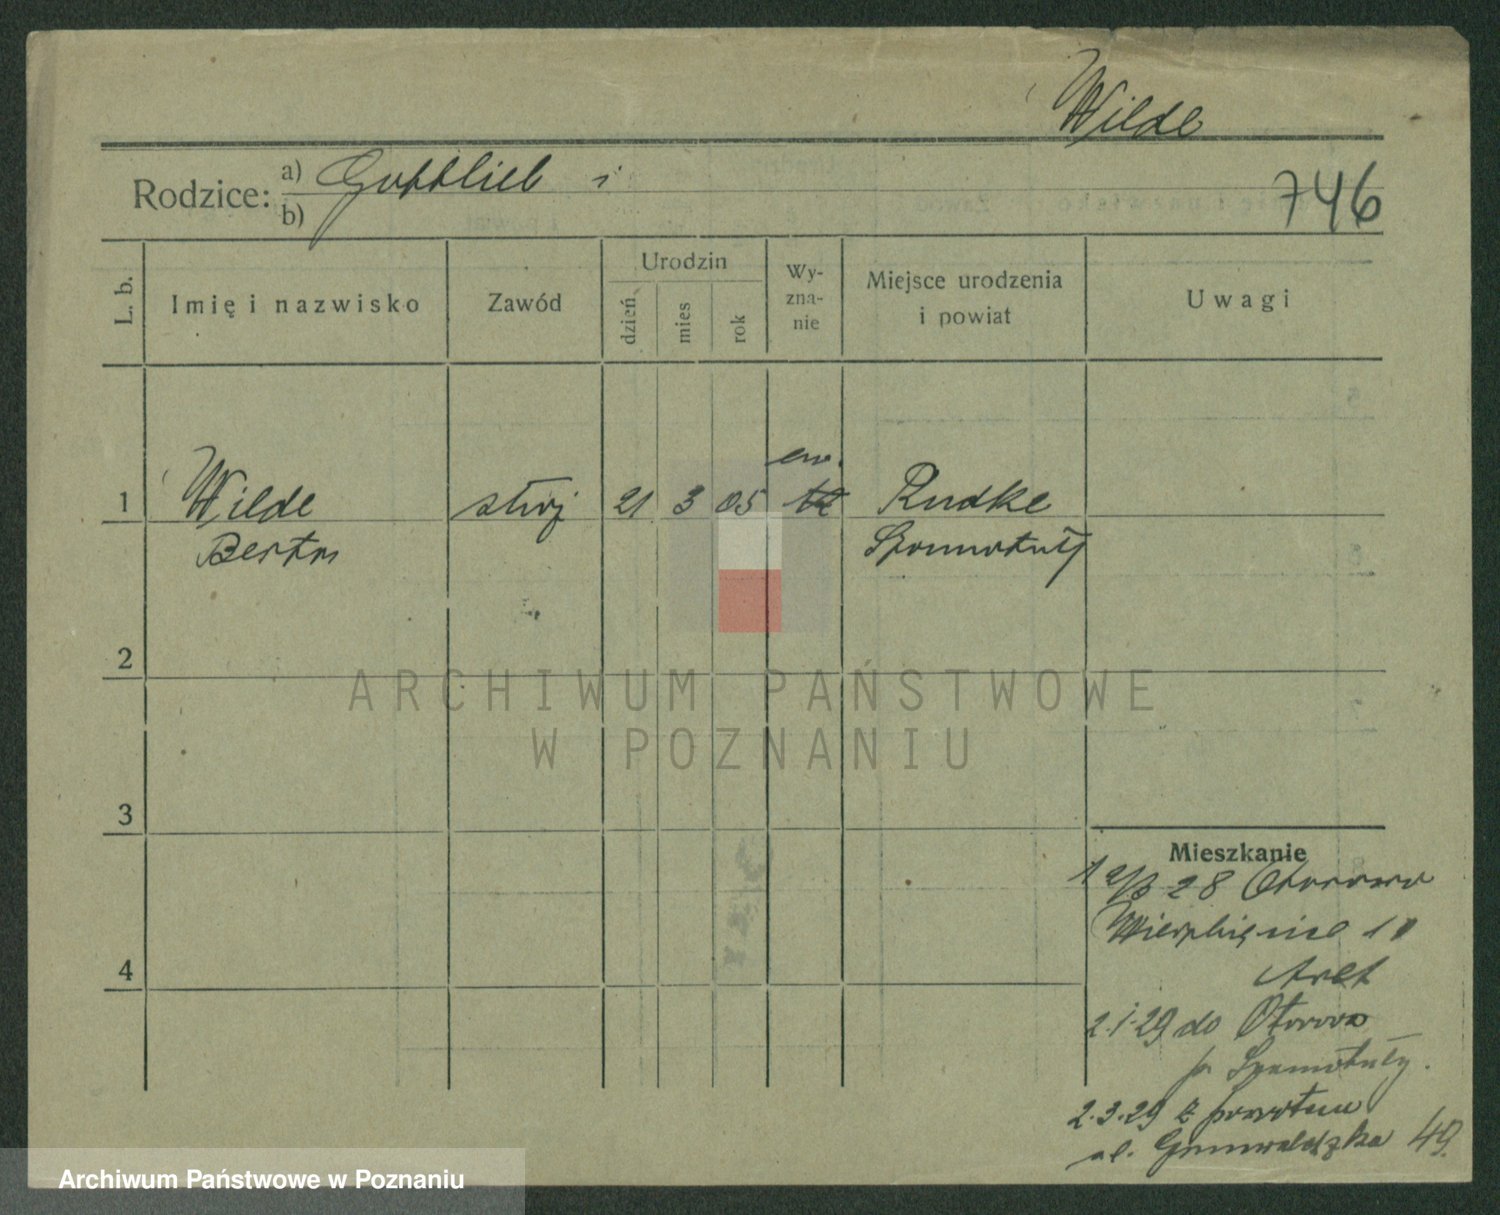 Wilde
Rodzice: a) Gottlieb i
b)
746
L. b.
Imię i nazwisko
Zawód
Urodzin
dzień
mies
rok
Wy-
zna-
nie
Miejsce urodzenia
i powiat
Uwagi
1 Wilde służ 21 3 05 ew. Rudke
Berta Szamotuły
2
3
4
Mieszkanie
28 Otorowo
Wierzbięcice
2.1.29 do Otorowa
p. Szamotuły.
2.3.29 z powrotem
ul. Grunwaldzka 49.
ARCHIWUM PAŃSTWOWE
W POZNANIU
Archiwum Państwowe w Poznaniu